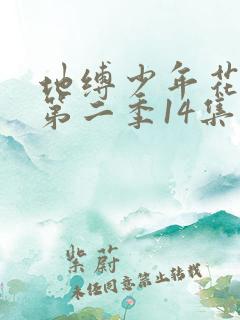 地缚少年花
第二季14集
紫蔚
未经同意禁止转载